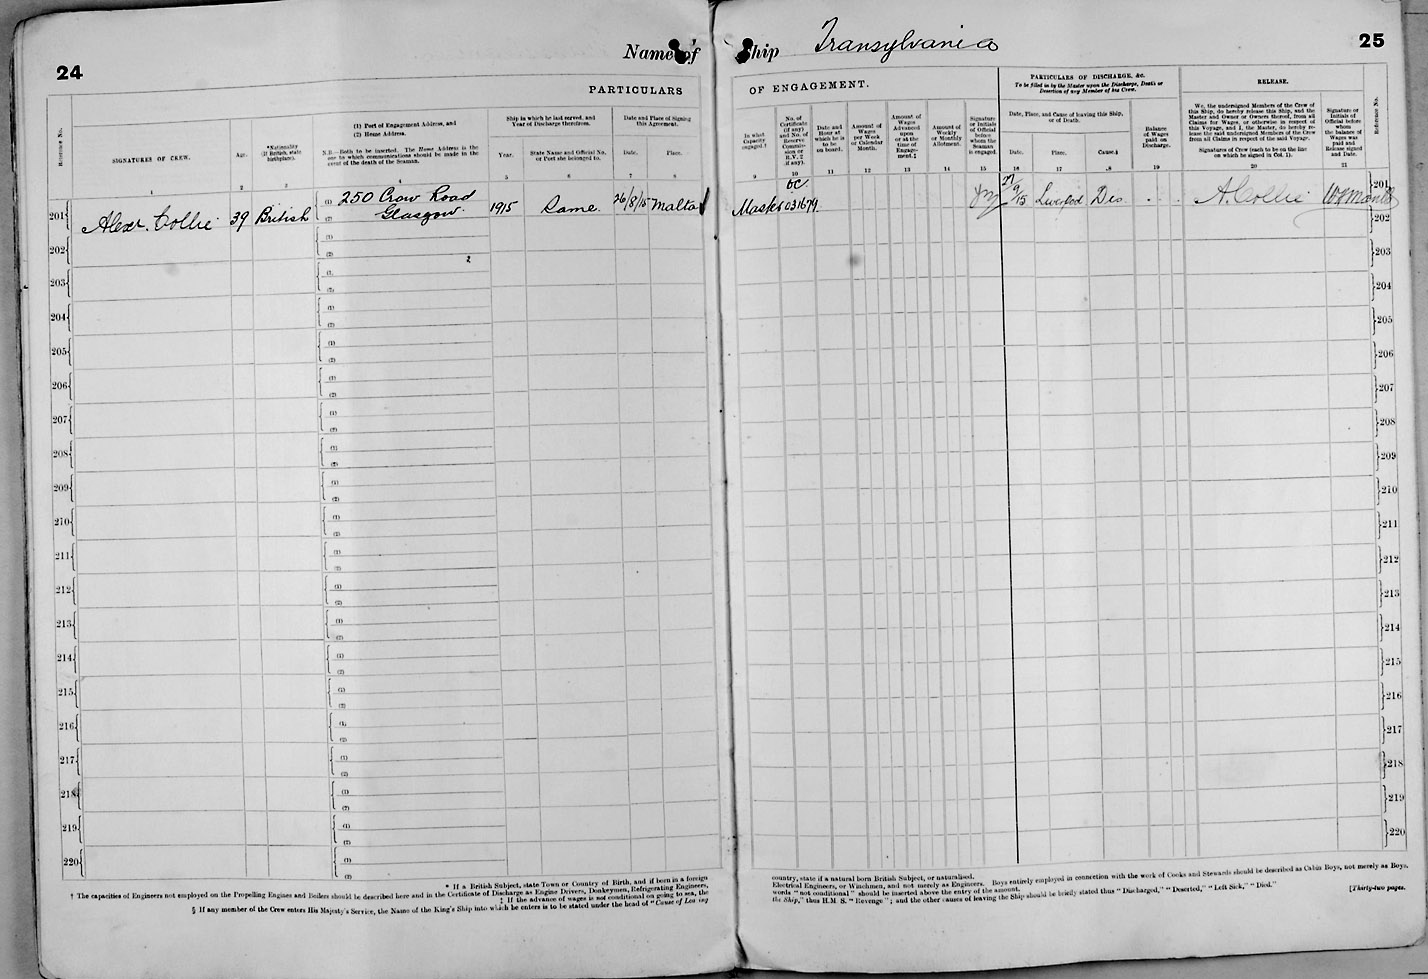 24
Name of Ship Transylvania
25
PARTICULARS OF ENGAGEMENT.
PARTICULARS OF DISCHARGE, &c.
To be filled in by the Master upon the Discharge, Death or
Desertion of any Member of his Crew.
RELEASE.
Reference No.
SIGNATURES OF CREW.
Age.
*Nationality
(If British, state
birthplace).
(1) Port of Engagement Address, and
(2) Home Address.
N.B.—Both to be inserted. The Home Address is the
one to which communications should be made in the
event of the death of the Seaman.
Ship in which he last served, and
Year of Discharge therefrom.
Year.
State Name and Official No.
or Port she belonged to.
Date and Place of Signing
this Agreement.
Date.
Place.
In what
Capacity
engaged.†
No. of
Certificate
(if any)
and No. of
Reserve
Commis-
sion or
R.V. 2
if any).
Date and
Hour at
which he is
to be
on board.
Amount of
Wages
per Week
or Calendar
Month.
Amount of
Wages
Advanced
upon
or at the
time of
Engage-
ment.‡
Amount of
Weekly
or Monthly
Allotment.
Signature
or Initials
of Official
before
whom the
Seaman
is engaged.
Date, Place, and Cause of leaving this Ship,
or of Death.
Date.
Place.
Cause.§
Balance
of Wages
paid on
Discharge.
We, the undersigned Members of the Crew of
this Ship, do hereby release this Ship, and the
Master and Owner or Owners thereof, from all
Claims for Wages, or otherwise in respect of
this Voyage, and I, the Master, do hereby re-
lease the said undersigned Members of the Crew
from all Claims in respect of the said Voyage.
Signatures of Crew (each to be on the line
on which he signed in Col. 1).
Signature or
Initials of
Official before
whom
the balance of
Wages was
paid and
Release signed
and Date.
Reference No.
1 2 3 4 5 6 7 8 9 10 11 12 13 14 15 16 17 18 19 20 21
201 Alexr. Collie 39 British (1) 250 Crow Road
(2) Glasgow. 1915 Same. 26/8/15 Malta Master OC. 031679. 27/9/15 Liverpool Dis - - - A. Collie 201
202 (1) (2) 202
203 (1) (2) 203
204 (1) (2) 204
205 (1) (2) 205
206 (1) (2) 206
207 (1) (2) 207
208 (1) (2) 208
209 (1) (2) 209
210 (1) (2) 210
211 (1) (2) 211
212 (1) (2) 212
213 (1) (2) 213
214 (1) (2) 214
215 (1) (2) 215
216 (1) (2) 216
217 (1) (2) 217
218 (1) (2) 218
219 (1) (2) 219
220 (1) (2) 220
* If a British Subject, state Town or Country of Birth, and if born in a foreign country, state if a natural born British Subject, or naturalised.
† The capacities of Engineers not employed on the Propelling Engines and Boilers should be described here and in the Certificate of Discharge as Engine Drivers, Donkeymen, Refrigerating Engineers, Electrical Engineers, or Winchmen, and not merely as Engineers. Boys entirely employed in connection with the work of Cooks and Stewards should be described as Cabin Boys, not merely as Boys.
‡ If the advance of wages is not conditional on going to sea, the words "not conditional" should be inserted above the entry of the amount.
§ If any member of the Crew enters His Majesty's Service, the Name of the King's Ship into which he enters is to be stated under the head of "Cause of Leaving the Ship," thus H.M.S. "Revenge"; and the other causes of leaving the Ship should be briefly stated thus "Discharged," "Deserted," "Left Sick," "Died."
[Thirty-two pages.